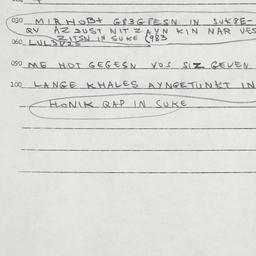 030 MIR HOBT GEGESN IN SUKE-
AZ DUST NIT ZAYN KIN NAR VES
ZITSN IN SUKE (983
060
090 ME HOT GEGESN VOS SIZ GEVEN
100 LANGE KHALES AYNGETUNKT IN
HONIK RAP IN SUKE